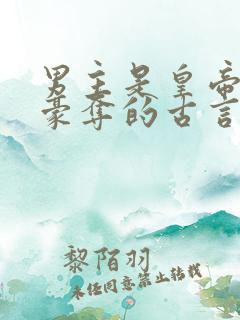 男主是皇帝
豪夺的古言
黎陌羽
未经同意禁止转载